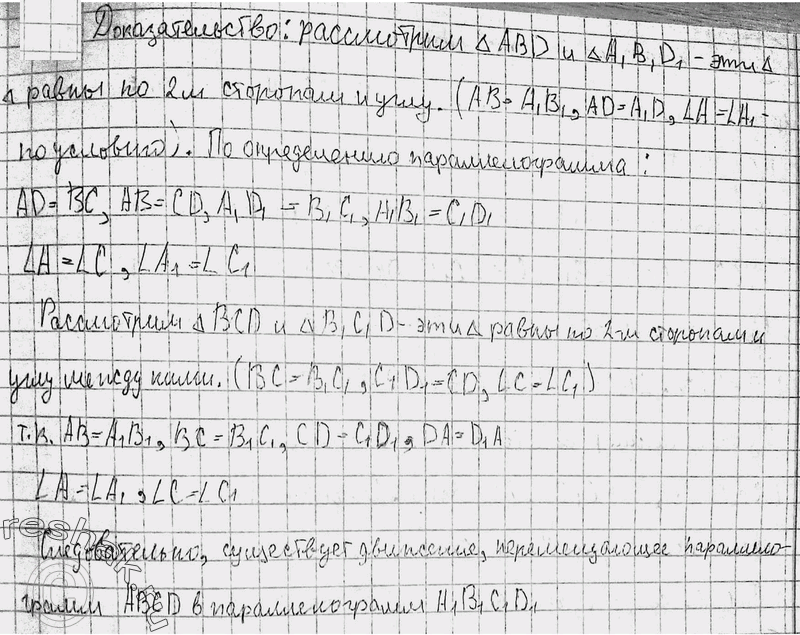 Доказательство: рассмотрим △ABD и △A₁B₁D₁ - эти △
△ равны по 2м сторонам и углу. (AB = A₁B₁, AD = A₁D, ∠A = ∠A₁ -
по условию). По определению параллелограмма:
AD = BC, AB = CD, A₁D₁ = B₁C₁, A₁B₁ = C₁D₁
∠A = ∠C, ∠A₁ = ∠C₁
Рассмотрим △BCD и △B₁C₁D - эти △ равны по 2-м сторонам и
углу между ними. (BC = B₁C₁, C₁D₁ = CD, ∠C = ∠C₁)
т.к. AB = A₁B₁, BC = B₁C₁, CD = C₁D₁, DA = D₁A
∠A = ∠A₁, ∠C = ∠C₁
Следовательно, существует движение, перемещающее параллело-
грамм ABCD в параллелограмм A₁B₁C₁D₁